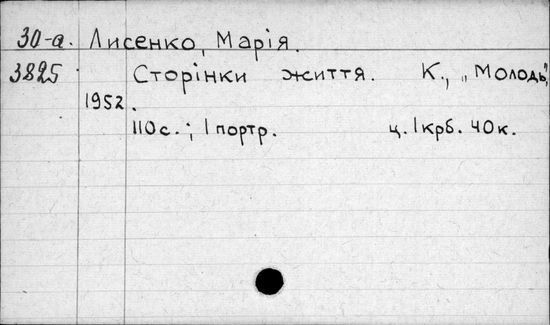 30-а. Лисенко, Марія.
3825 Сторінки життя. К., „Молодь",
1952.
110 с.; 1 портр. ц. 1 крб. 40 к.